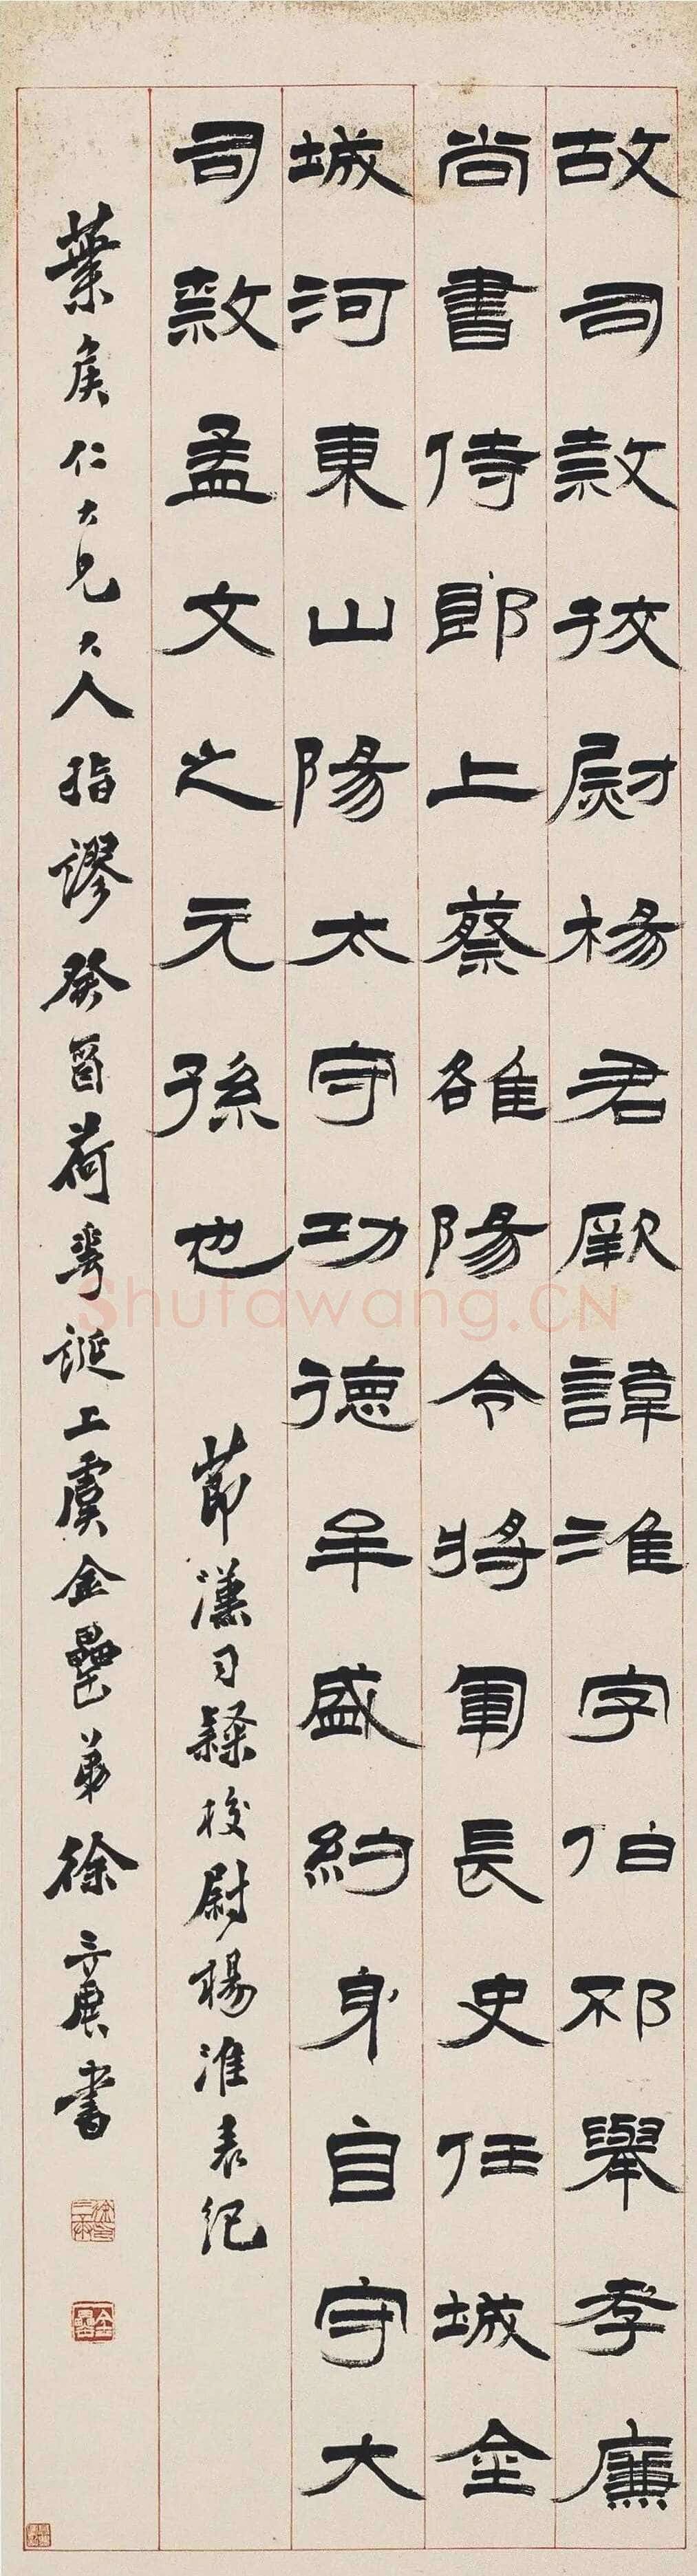 故司隸挍尉楊君厥諱淮字伯邳舉孝廉
尚書侍郎上蔡雒陽令將軍長史任城金
城河東山陽太守功德牟盛約身自守大
司隸孟文之元孫也
節漢司隸校尉楊淮表紀
葉侯仁大兄大人指謬癸酉荷花誕上虞金罍弟徐三庚書
Shufawang.CN